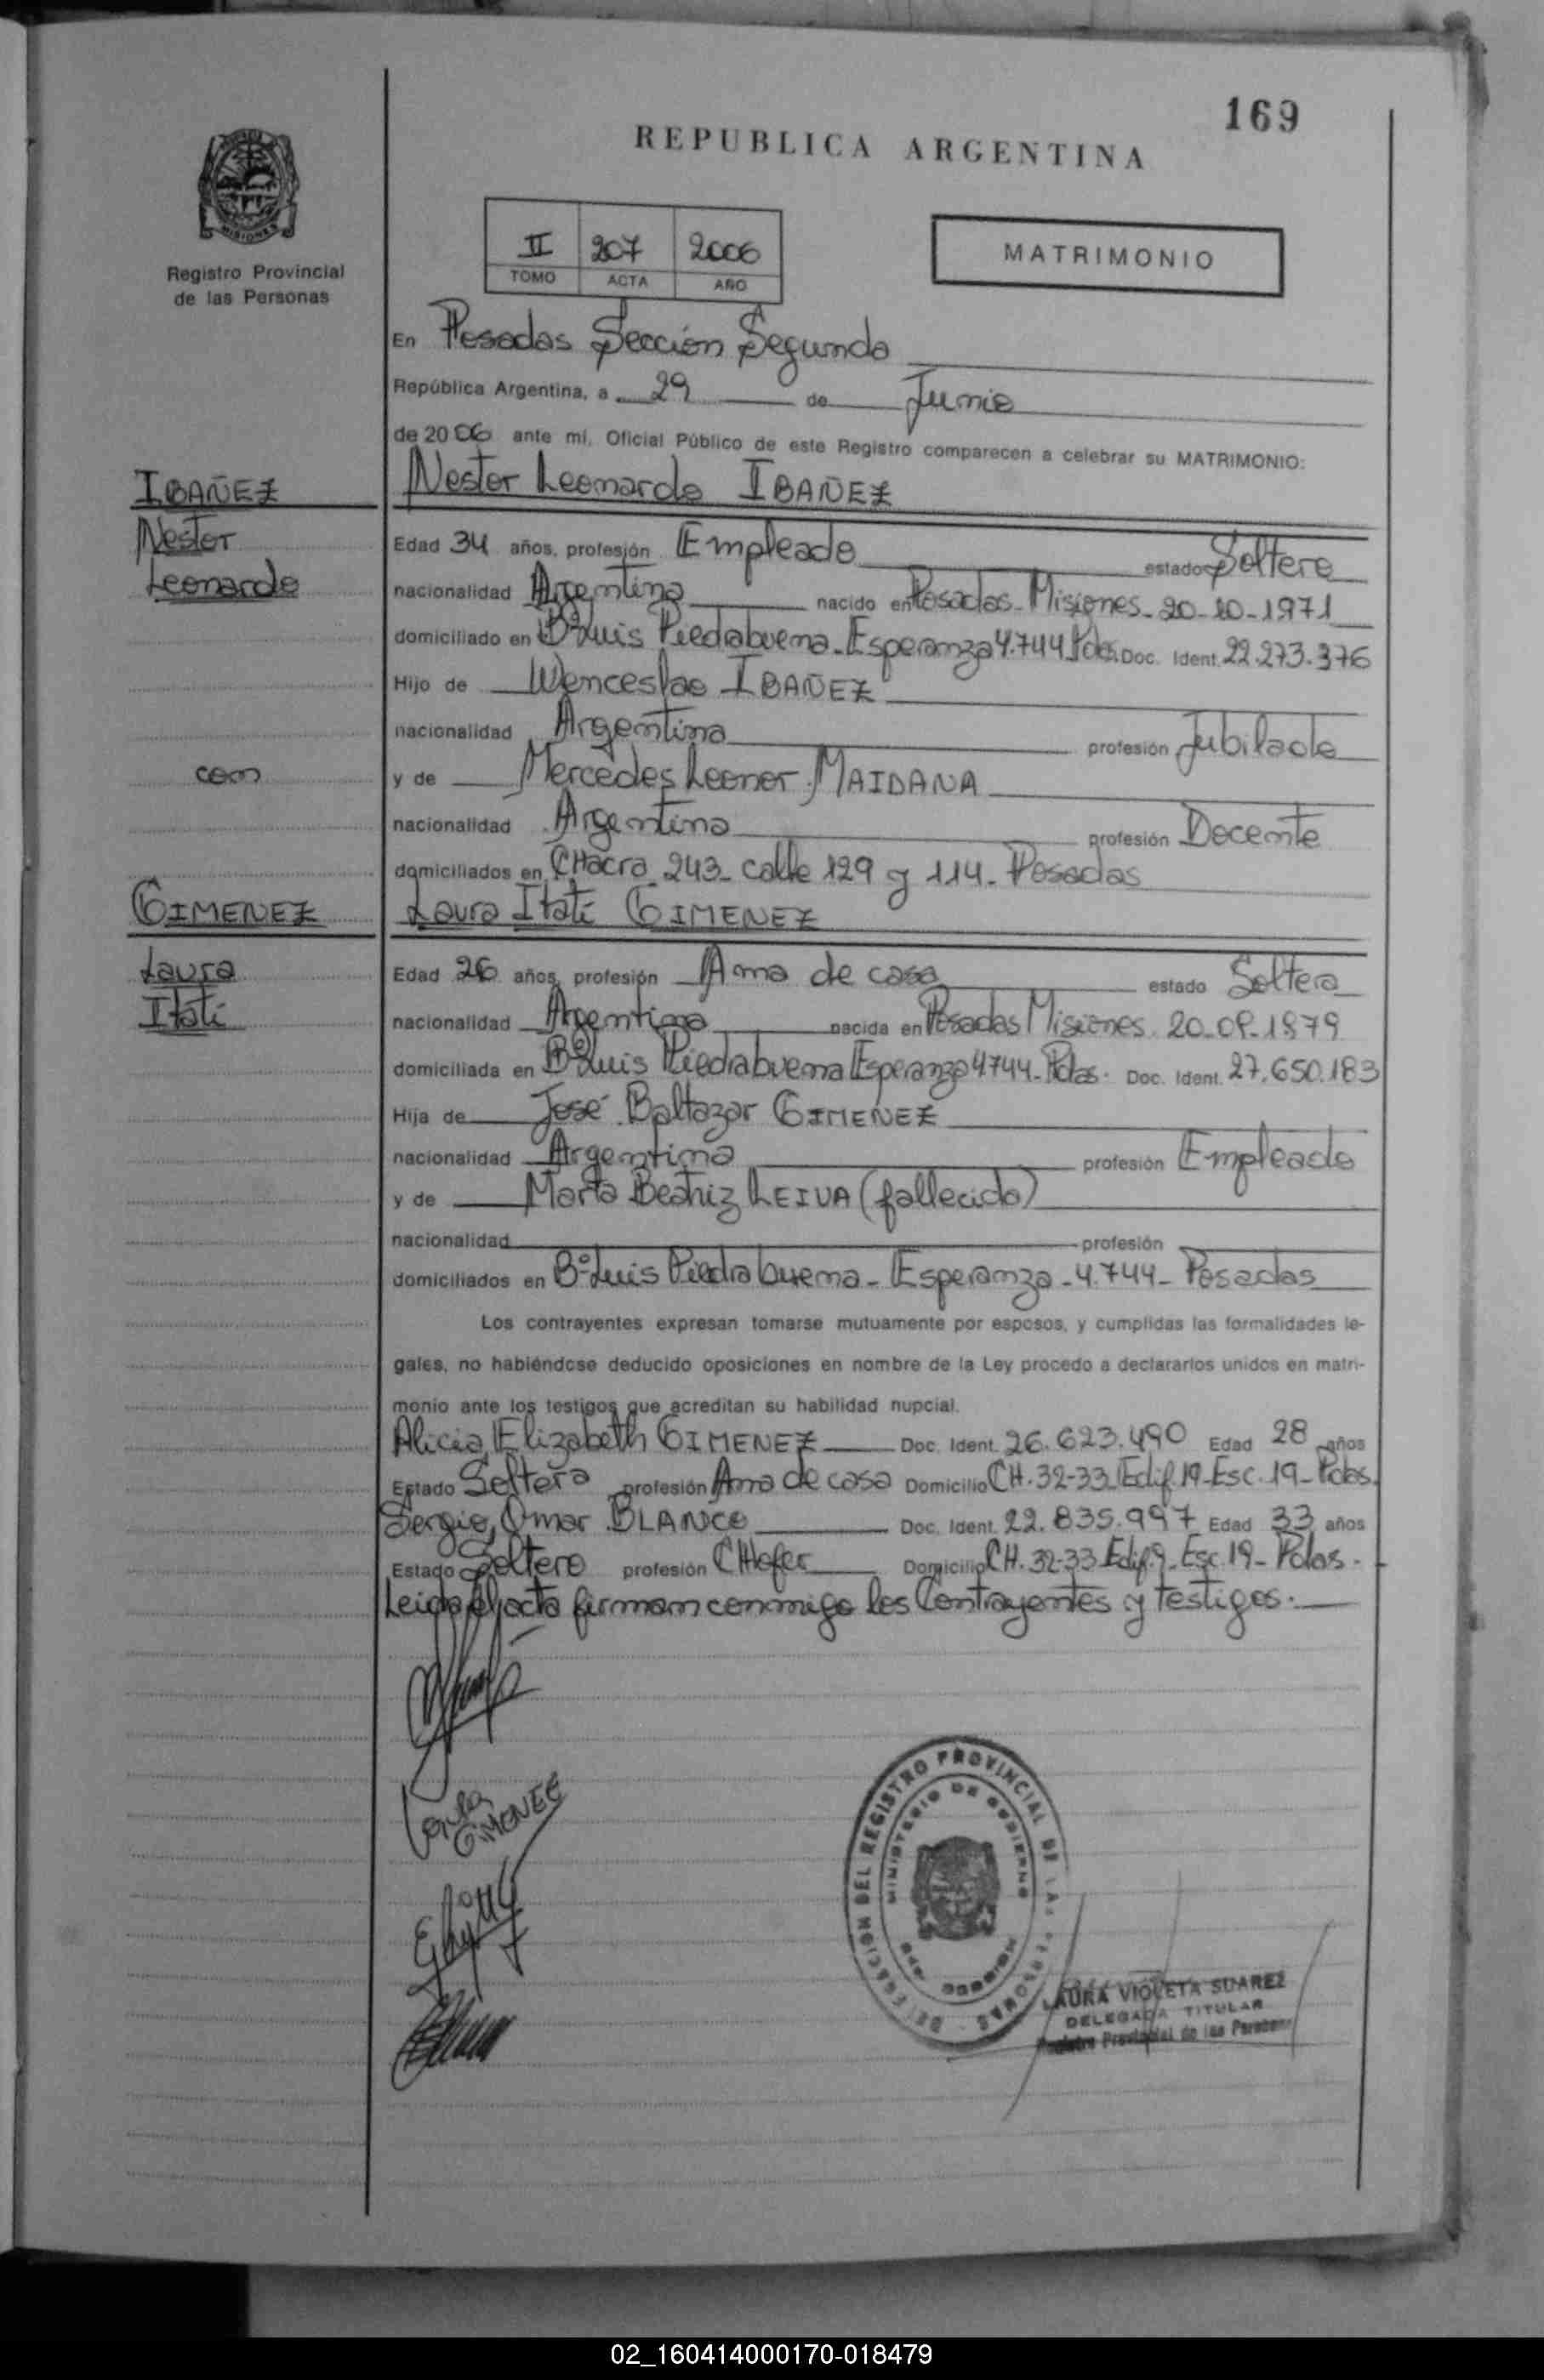 169
REPUBLICA ARGENTINA
MISIONES
Registro Provincial
de las Personas
II 207 2006
TOMO ACTA AÑO
MATRIMONIO
En Posadas Sección Segunda
República Argentina, a 29 de Junio
de 2006 ante mí, Oficial Público de este Registro comparecen a celebrar su MATRIMONIO:
IBAÑEZ
Nestor
Leonardo
con
GIMENEZ
Laura
Itatí
Nestor Leonardo IBAÑEZ
Edad 34 años, profesión Empleado estado Soltero
nacionalidad Argentina nacido en Posadas - Misiones - 20-10-1971
domiciliado en Bº Luis Piedrabuena - Esperanza 4.744 Pdas. Doc. Ident. 22.273.376
Hijo de Wenceslao IBAÑEZ
nacionalidad Argentina profesión Jubilado
y de Mercedes Leonor MAIDANA
nacionalidad Argentina profesión Docente
domiciliados en CHacra 243 - calle 129 y 114 - Posadas
Laura Itatí GIMENEZ
Edad 26 años, profesión Ama de casa estado Soltera
nacionalidad Argentina nacida en Posadas Misiones. 20-09-1979
domiciliada en Bº Luis Piedrabuena Esperanza 4744 - Pdas. Doc. Ident. 27.650.183
Hija de José Baltazar GIMENEZ
nacionalidad Argentina profesión Empleado
y de Marta Beatriz LEIVA (fallecida)
nacionalidad profesión
domiciliados en Bº Luis Piedrabuena - Esperanza - 4.744 - Posadas
Los contrayentes expresan tomarse mutuamente por esposos, y cumplidas las formalidades le-
gales, no habiéndose deducido oposiciones en nombre de la Ley procedo a declararlos unidos en matri-
monio ante los testigos que acreditan su habilidad nupcial.
Alicia Elizabeth GIMENEZ Doc. Ident. 26.623.490 Edad 28 años
Estado Soltera profesión Ama de casa Domicilio CH. 32-33 Edif. 19 - Esc. 19 - Pdas.
Sergio Omar BLANCO Doc. Ident. 22.835.997 Edad 33 años
Estado Soltero profesión CHofer Domicilio CH. 32-33 Edif. 9 - Esc. 19 - Pdas. -
Leida el acta firman conmigo los Contrayentes y testigos. -
Laura
GIMENEZ
DELEGACION DEL REGISTRO PROVINCIAL DE LAS PERSONAS
MINISTERIO DE GOBIERNO
LAURA VIOLETA SUAREZ
DELEGADA TITULAR
Registro Provincial de las Personas
02_160414000170-018479